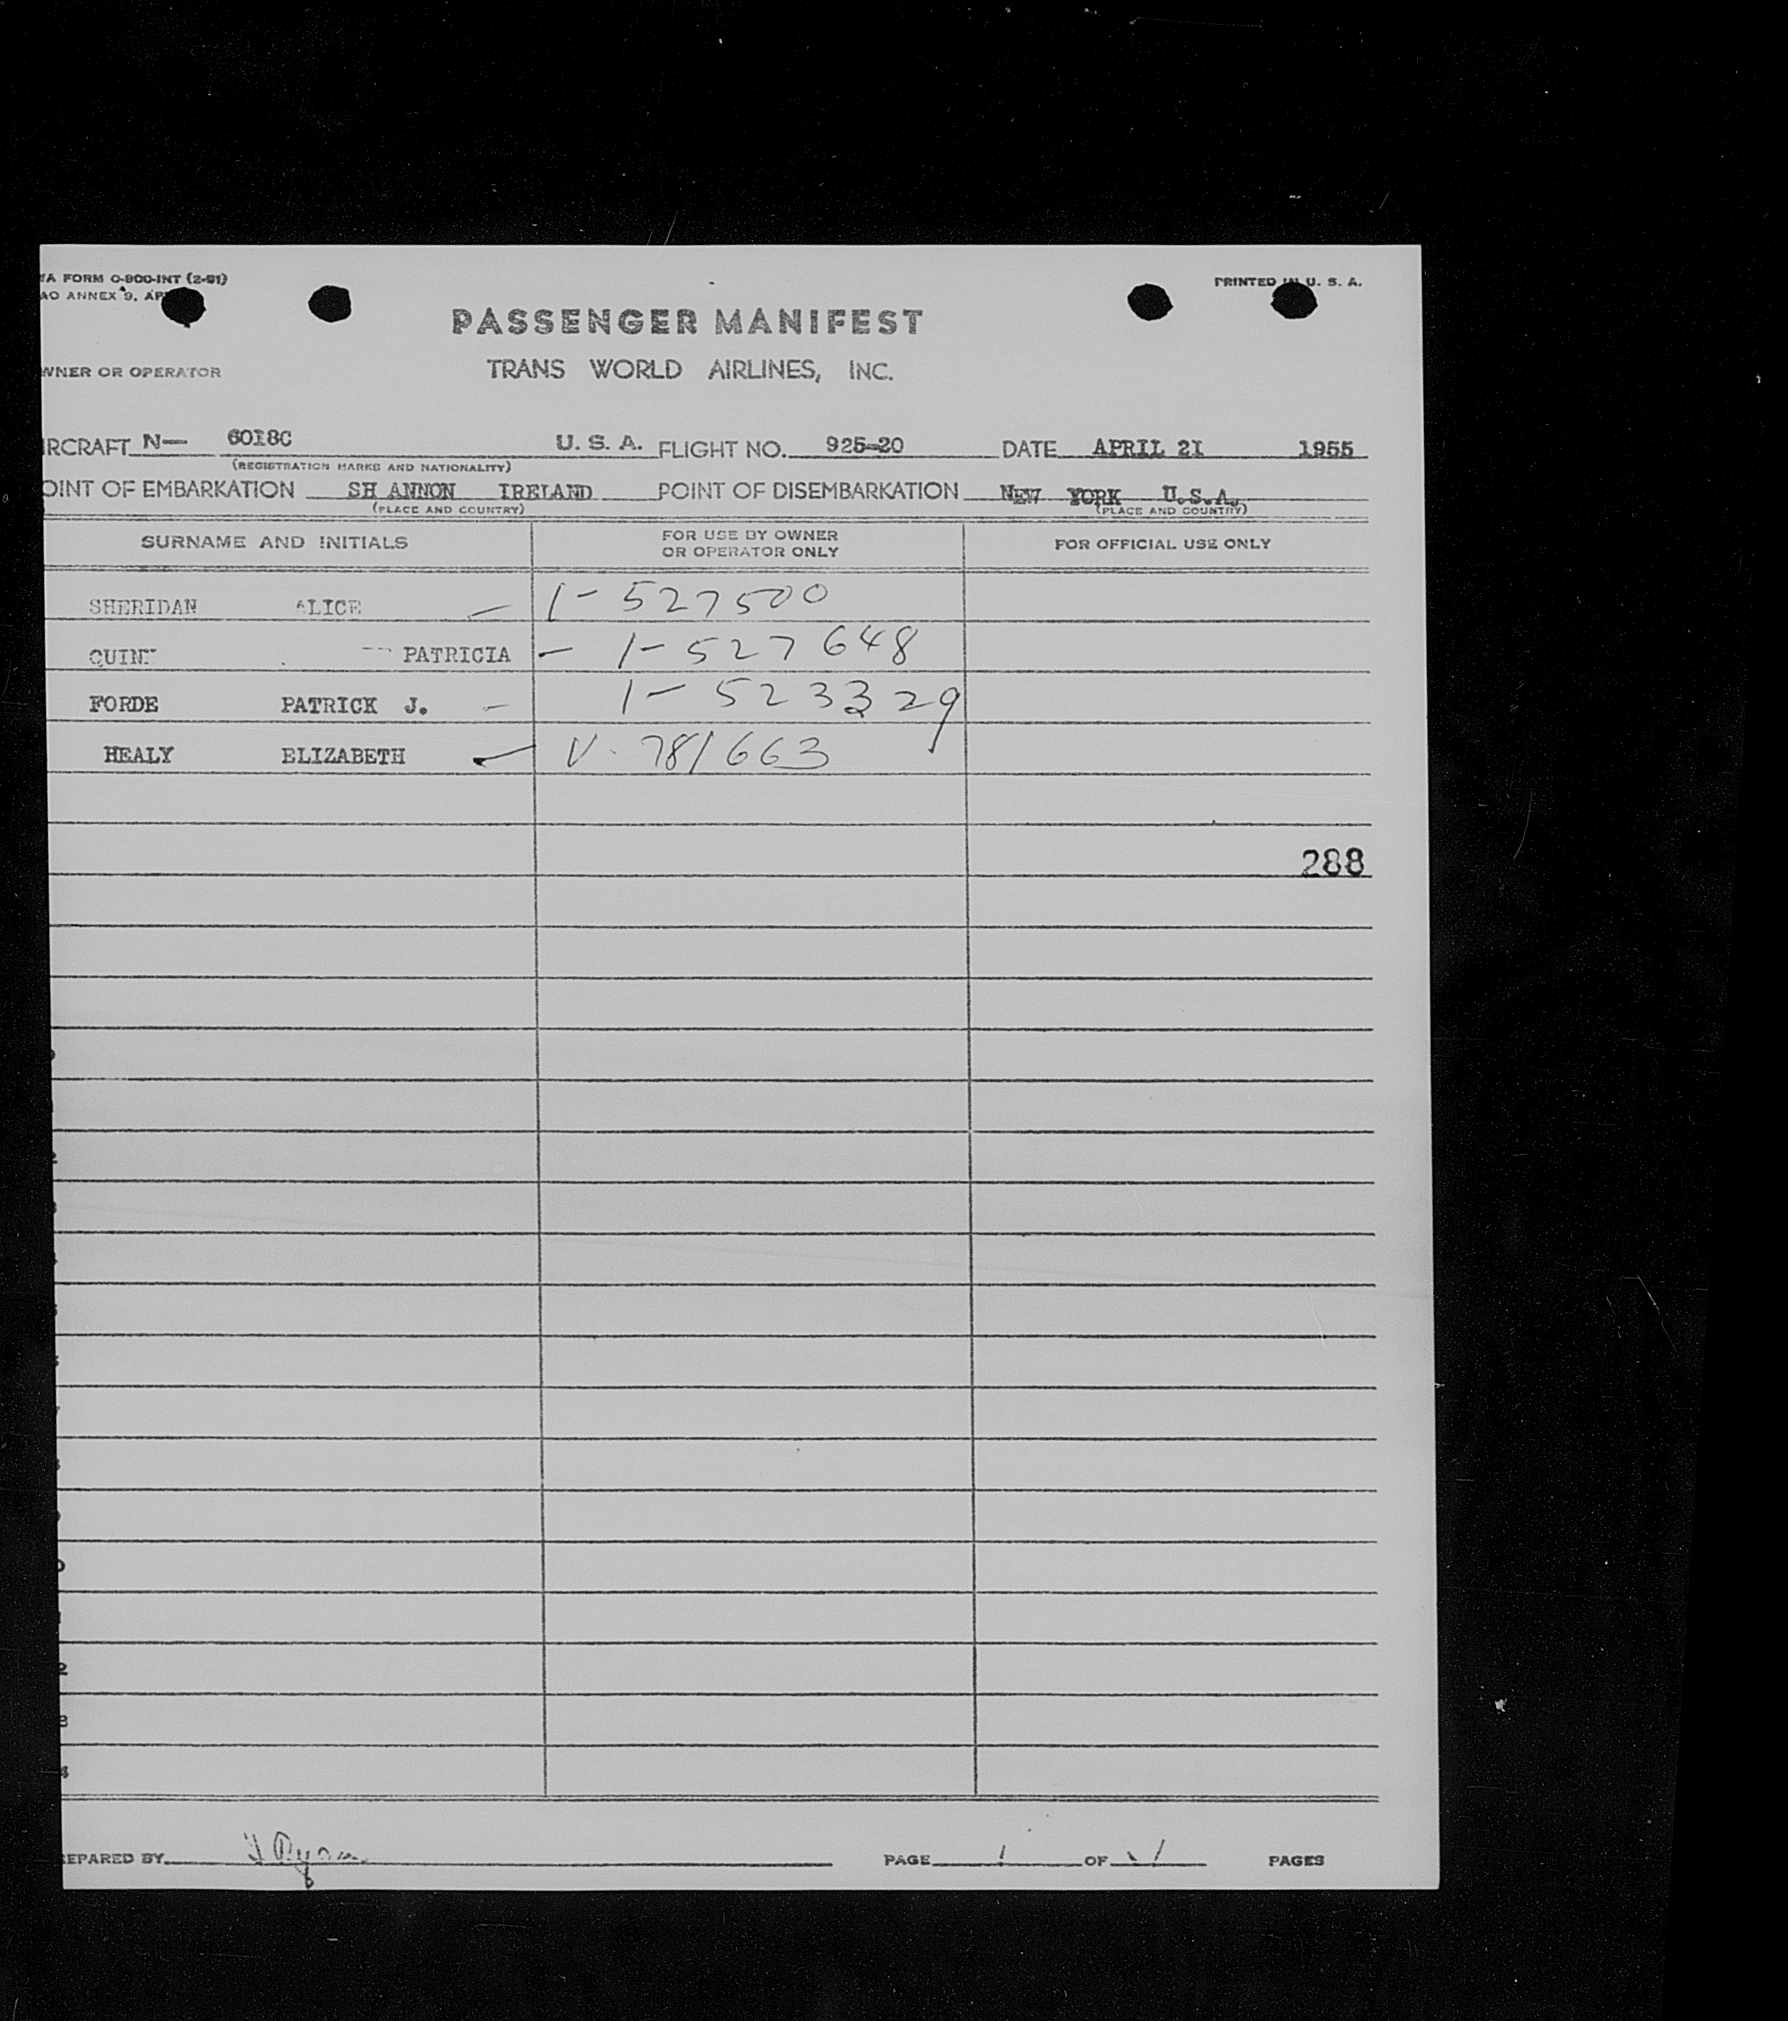 A FORM O-800-INT (2-51)
AO ANNEX 9,
PRINTED IN U. S. A.
PASSENGER MANIFEST
WNER OR OPERATOR
TRANS WORLD AIRLINES, INC.
IRCRAFT N— 6018C U. S. A. FLIGHT NO. 925-20 DATE APRIL 21 1955
(REGISTRATION MARKS AND NATIONALITY)
OINT OF EMBARKATION SH ANNON IRELAND POINT OF DISEMBARKATION NEW YORK U.S.A.
(PLACE AND COUNTRY) (PLACE AND COUNTRY)
SURNAME AND INITIALS
FOR USE BY OWNER
OR OPERATOR ONLY
FOR OFFICIAL USE ONLY
SHERIDAN ALICE — 1-527500
PATRICIA — 1-527648
FORDE PATRICK J. — 1-523329
HEALY ELIZABETH — V-781663
288
EPARED BY PAGE 1 OF 1 PAGES